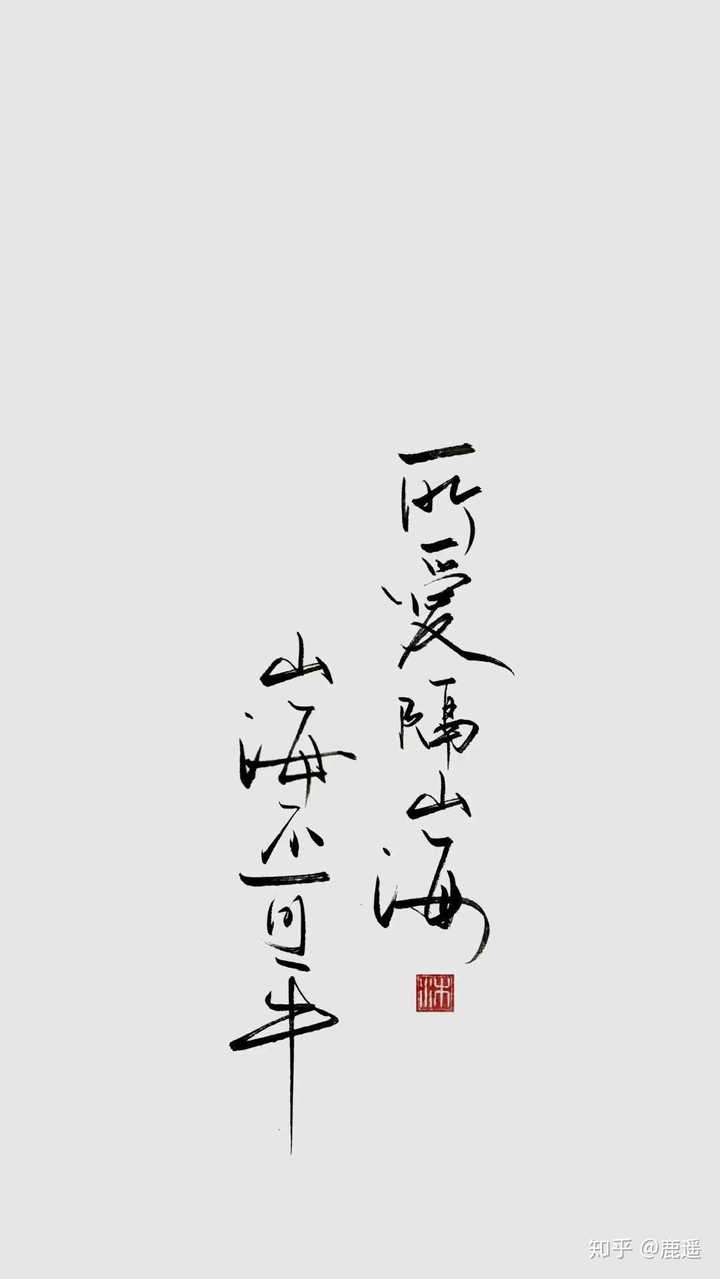 所爱隔山海
山海不可平
沐
知乎 @鹿遥